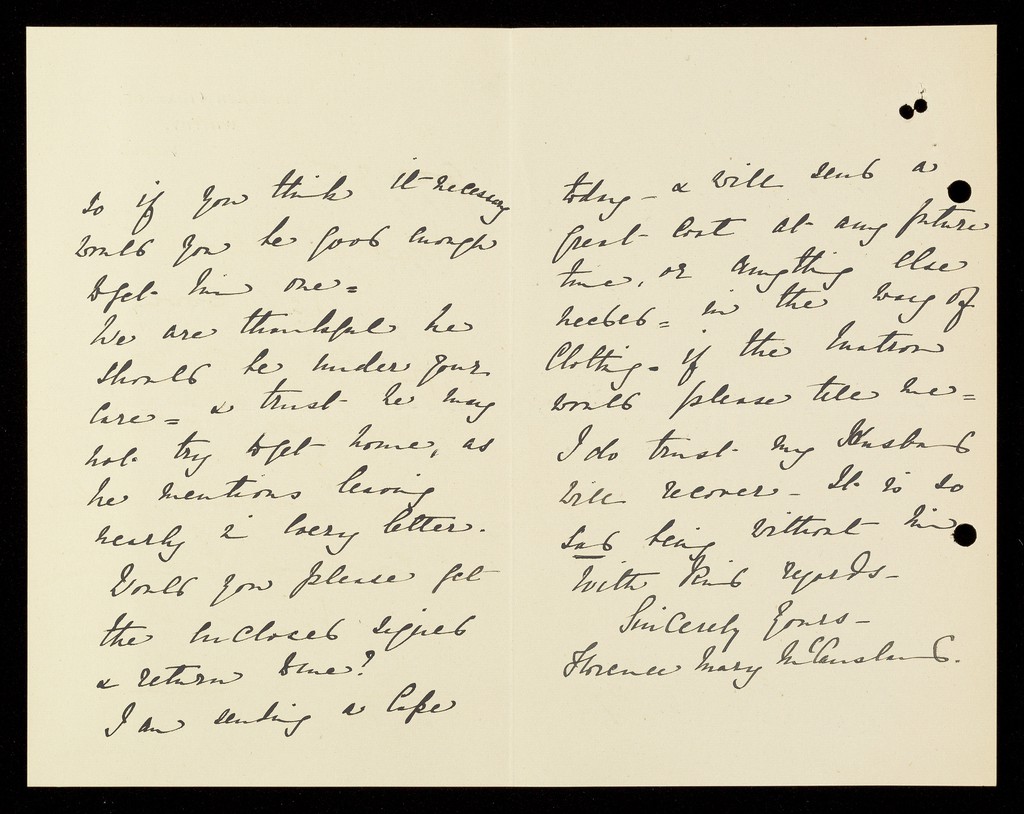 so if you think it necessary
would you be good enough
to get him one =
We are thankful he
should be under your
Care = & trust he may
not try to get home, as
he mentions leaving
nearly in every letter.
Would you please get
the inclosed signed
& return to me?
I am sending a Cape
today - & will send a
great coat at any future
time, or anything else
needed = in the way of
Clothing - if the Matron
would please tell me =
I do trust my Husband
will recover - It is so
sad being without him
With Kind regards -
Sincerely Yours -
Florence Mary McCausland.